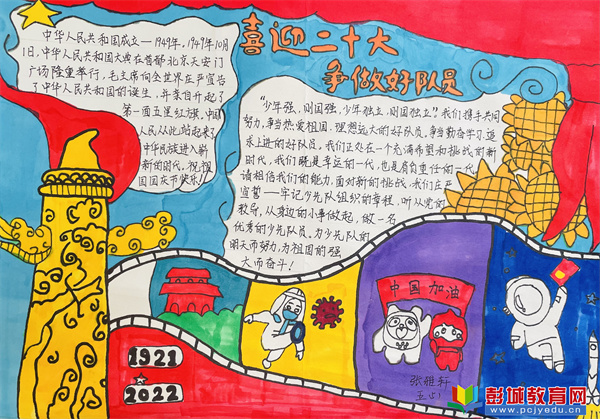 喜迎二十大
争做好队员
中华人民共和国成立——1949年,1949年10月
1日,中华人民共和国大典在首都北京天安门
广场隆重举行,毛主席向全世界庄严宣告
了中华人民共和国的诞生,并亲自升起了
第一面五星红旗,中国
人民从此站起来了
中华民族进入崭
新的时代。祝祖
国国庆节快乐!!
“少年强,则国强,少年独立,则国独立”我们携手共同
努力,争当热爱祖国,理想远大的好队员,争当勤奋学习,追
求上进的好队员,我们正处在一个充满希望和挑战的新
时代,我们既是幸运的一代,也是肩负重任的一代,
请相信我们的能力,面对新的挑战,我们庄严
宣誓——牢记少先队组织的章程,听从党的
教导,从身边的小事做起,做一名
优秀的少先队员。为少先队的
明天而努力,为祖国的强
大而奋斗!
中国加油
1921
2022
张雅轩
五(2)
彭城教育网
www.pcjyedu.cn